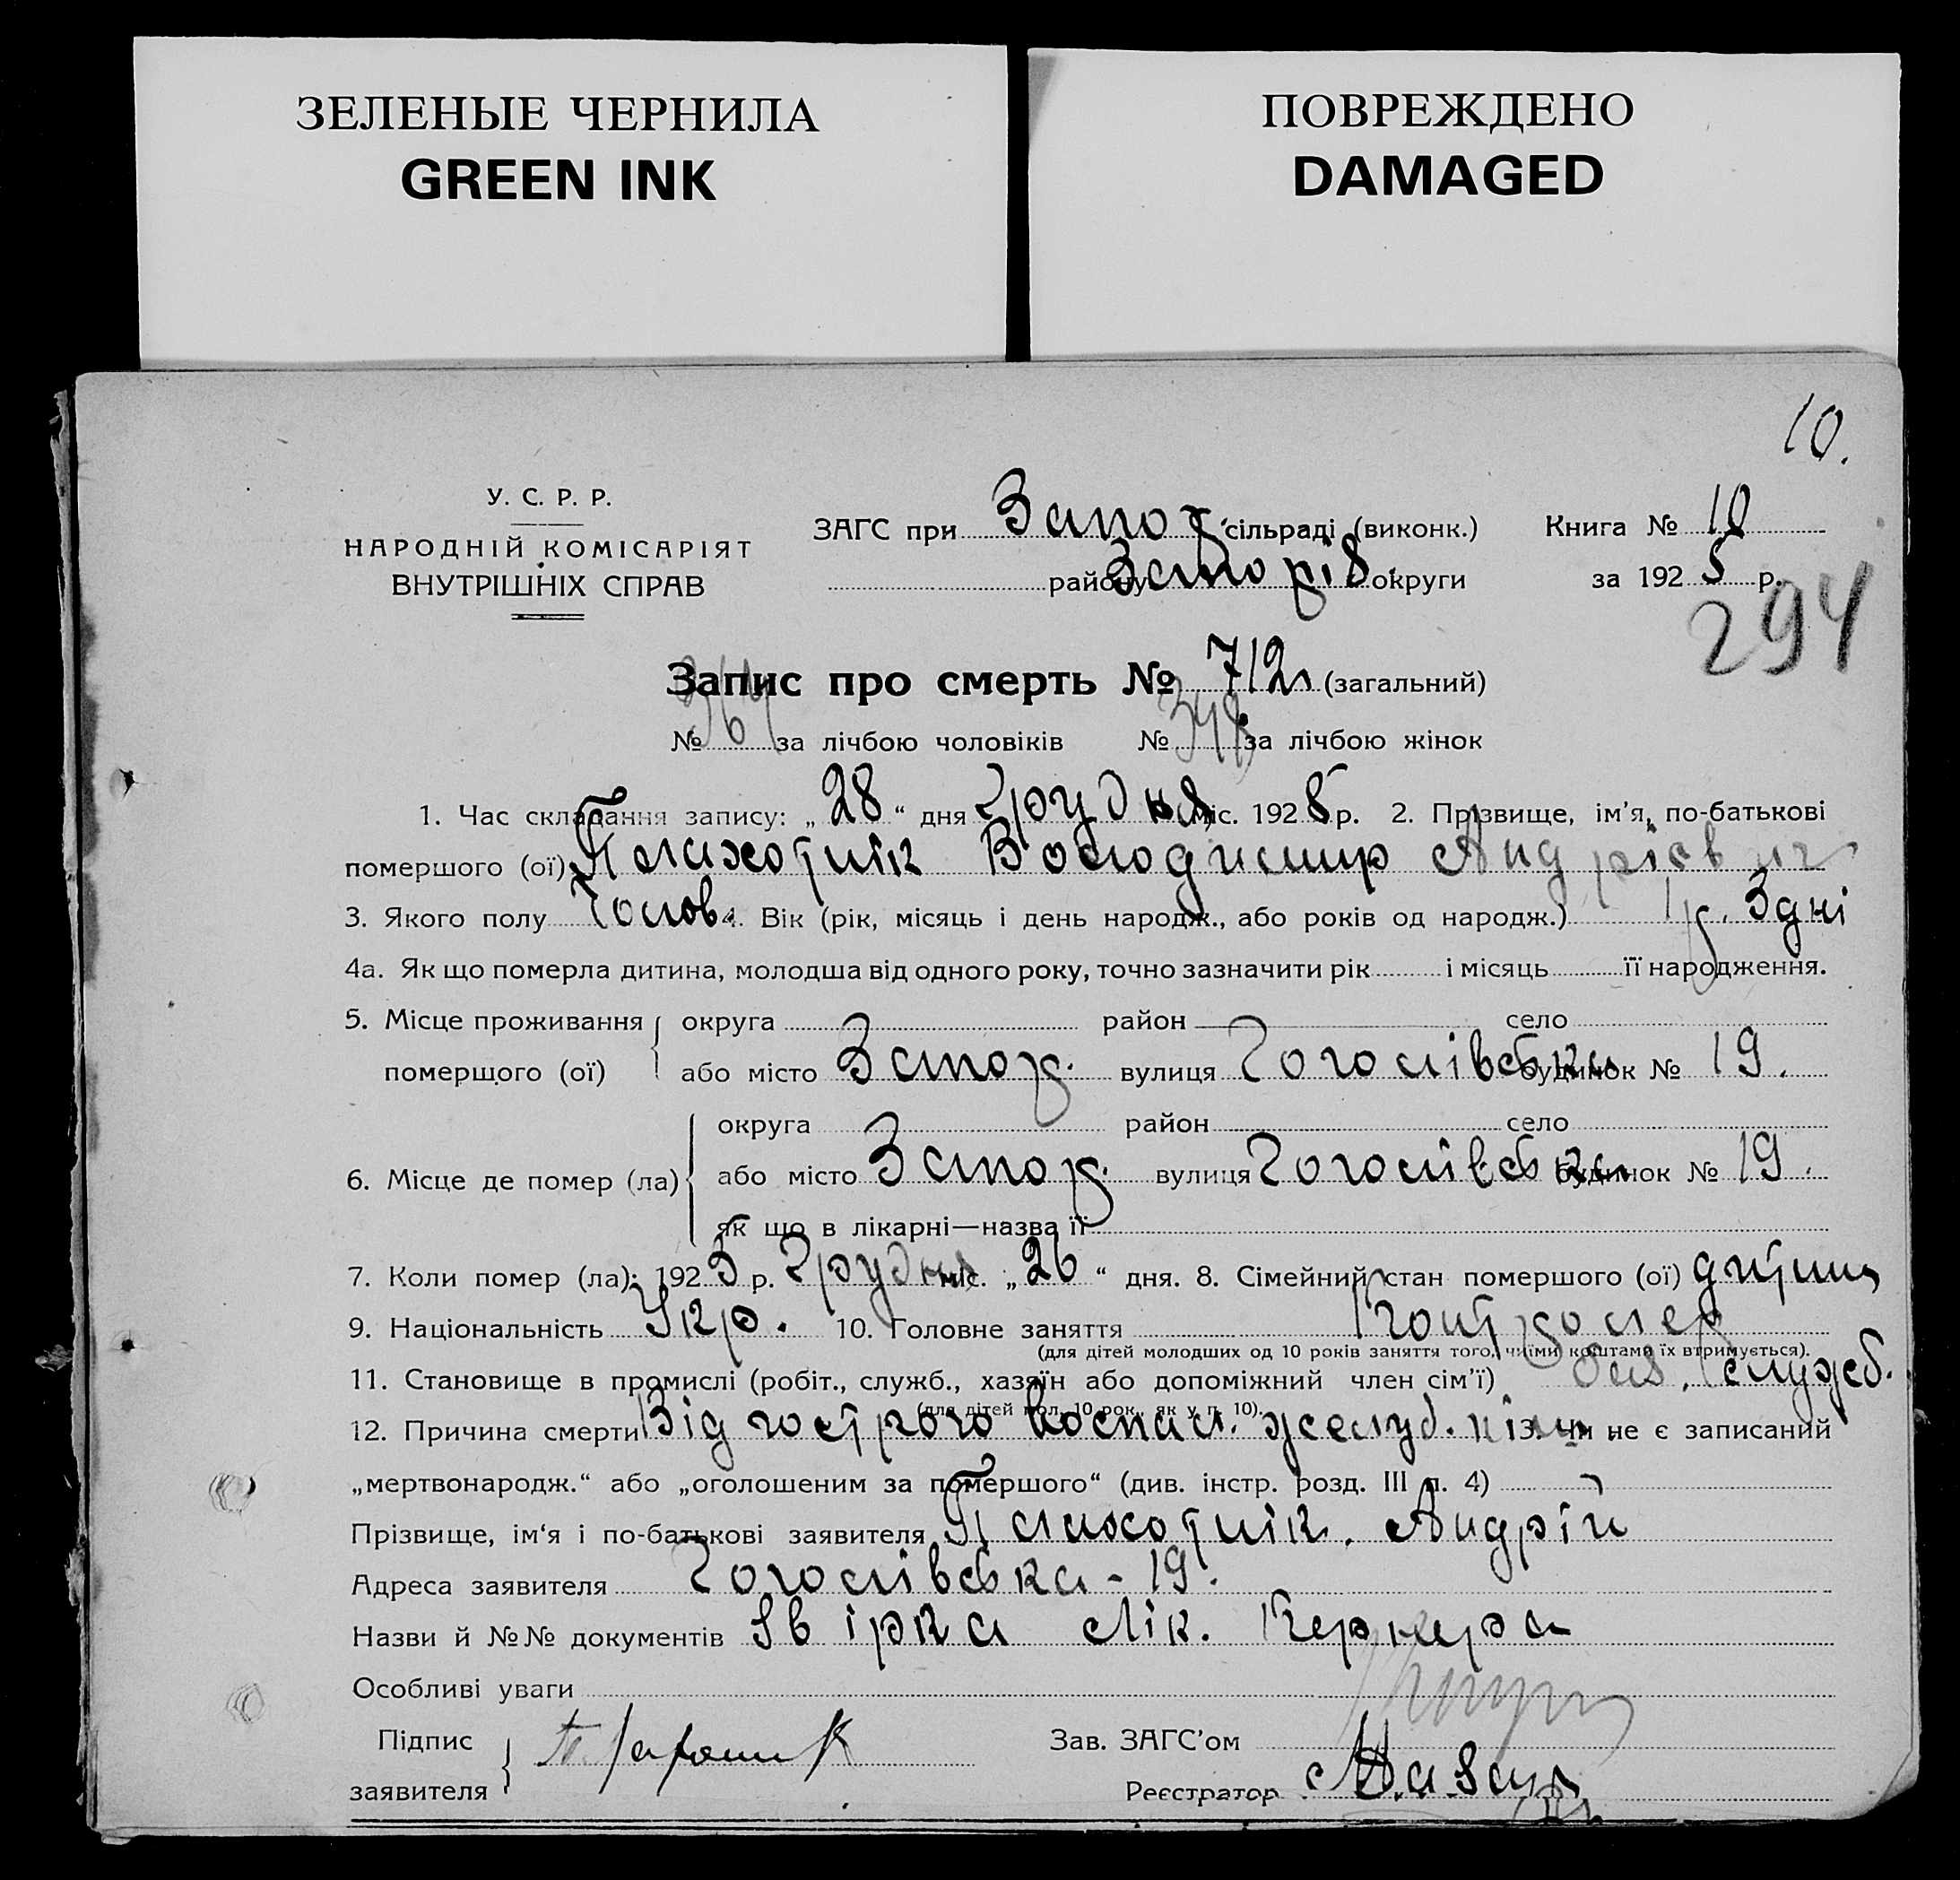 ЗЕЛЕНЫЕ ЧЕРНИЛА
GREEN INK
ПОВРЕЖДЕНО
DAMAGED
10.
У. С. Р. Р.
НАРОДНІЙ КОМІСАРІЯТ
ВНУТРІШНІХ СПРАВ
ЗАГС при Запор. сільраді (виконк.)
району Запорів. округи
Книга № 10
за 192 5 р.
294
Запис про смерть № 712 (загальний)
№ 364 за лічбою чоловіків № 348 за лічбою жінок
1. Час складання запису: „ 28 “ дня Грудня міс. 192 5 р. 2. Прізвище, ім’я, по-батькові
помершого (ої) Палахотнік Володимир Андрієвич
3. Якого полу Чолов. 4. Вік (рік, місяць і день народж., або років од народж.) 1 р. 3 дні
4а. Як що померла дитина, молодша від одного року, точно зазначити рік і місяць її народження.
5. Місце проживання округа район село
померщого (ої) або місто Запор. вулиця Гоголівська будинок № 19.
округа район село
6. Місце де помер (ла) або місто Запор. вулиця Гоголівська будинок № 19.
як що в лікарні—назва її
7. Коли помер (ла): 192 5 р. Грудня міс. „ 26 “ дня. 8. Сімейний стан помершого (ої) дитина
9. Національність Укр. 10. Головне заняття Контролер
(для дітей молодших од 10 років заняття того, чиїми коштами їх втримується).
11. Становище в промислі (робіт., служб., хазяїн або допоміжний член сім’ї) служб.
(для дітей мол. 10 рок., як у п. 10).
12. Причина смерти Від гострого воспал. желуд. кіш. 13. Чи не є записаний
„мертвонародж.“ або „оголошеним за помершого“ (див. інстр. розд. III п. 4)
Прізвище, ім‘я і по-батькові заявителя Палахотнік. Андрій
Адреса заявителя Гоголівська - 19.
Назви й №№ документів Звірка Лік. Кернера
Особливі уваги
Підпис
заявителя
Зав. ЗАГС’ом
Реєстратор